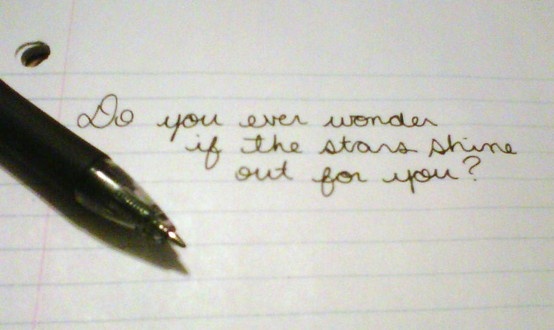 Do you ever wonder
if the stars shine
out for you?